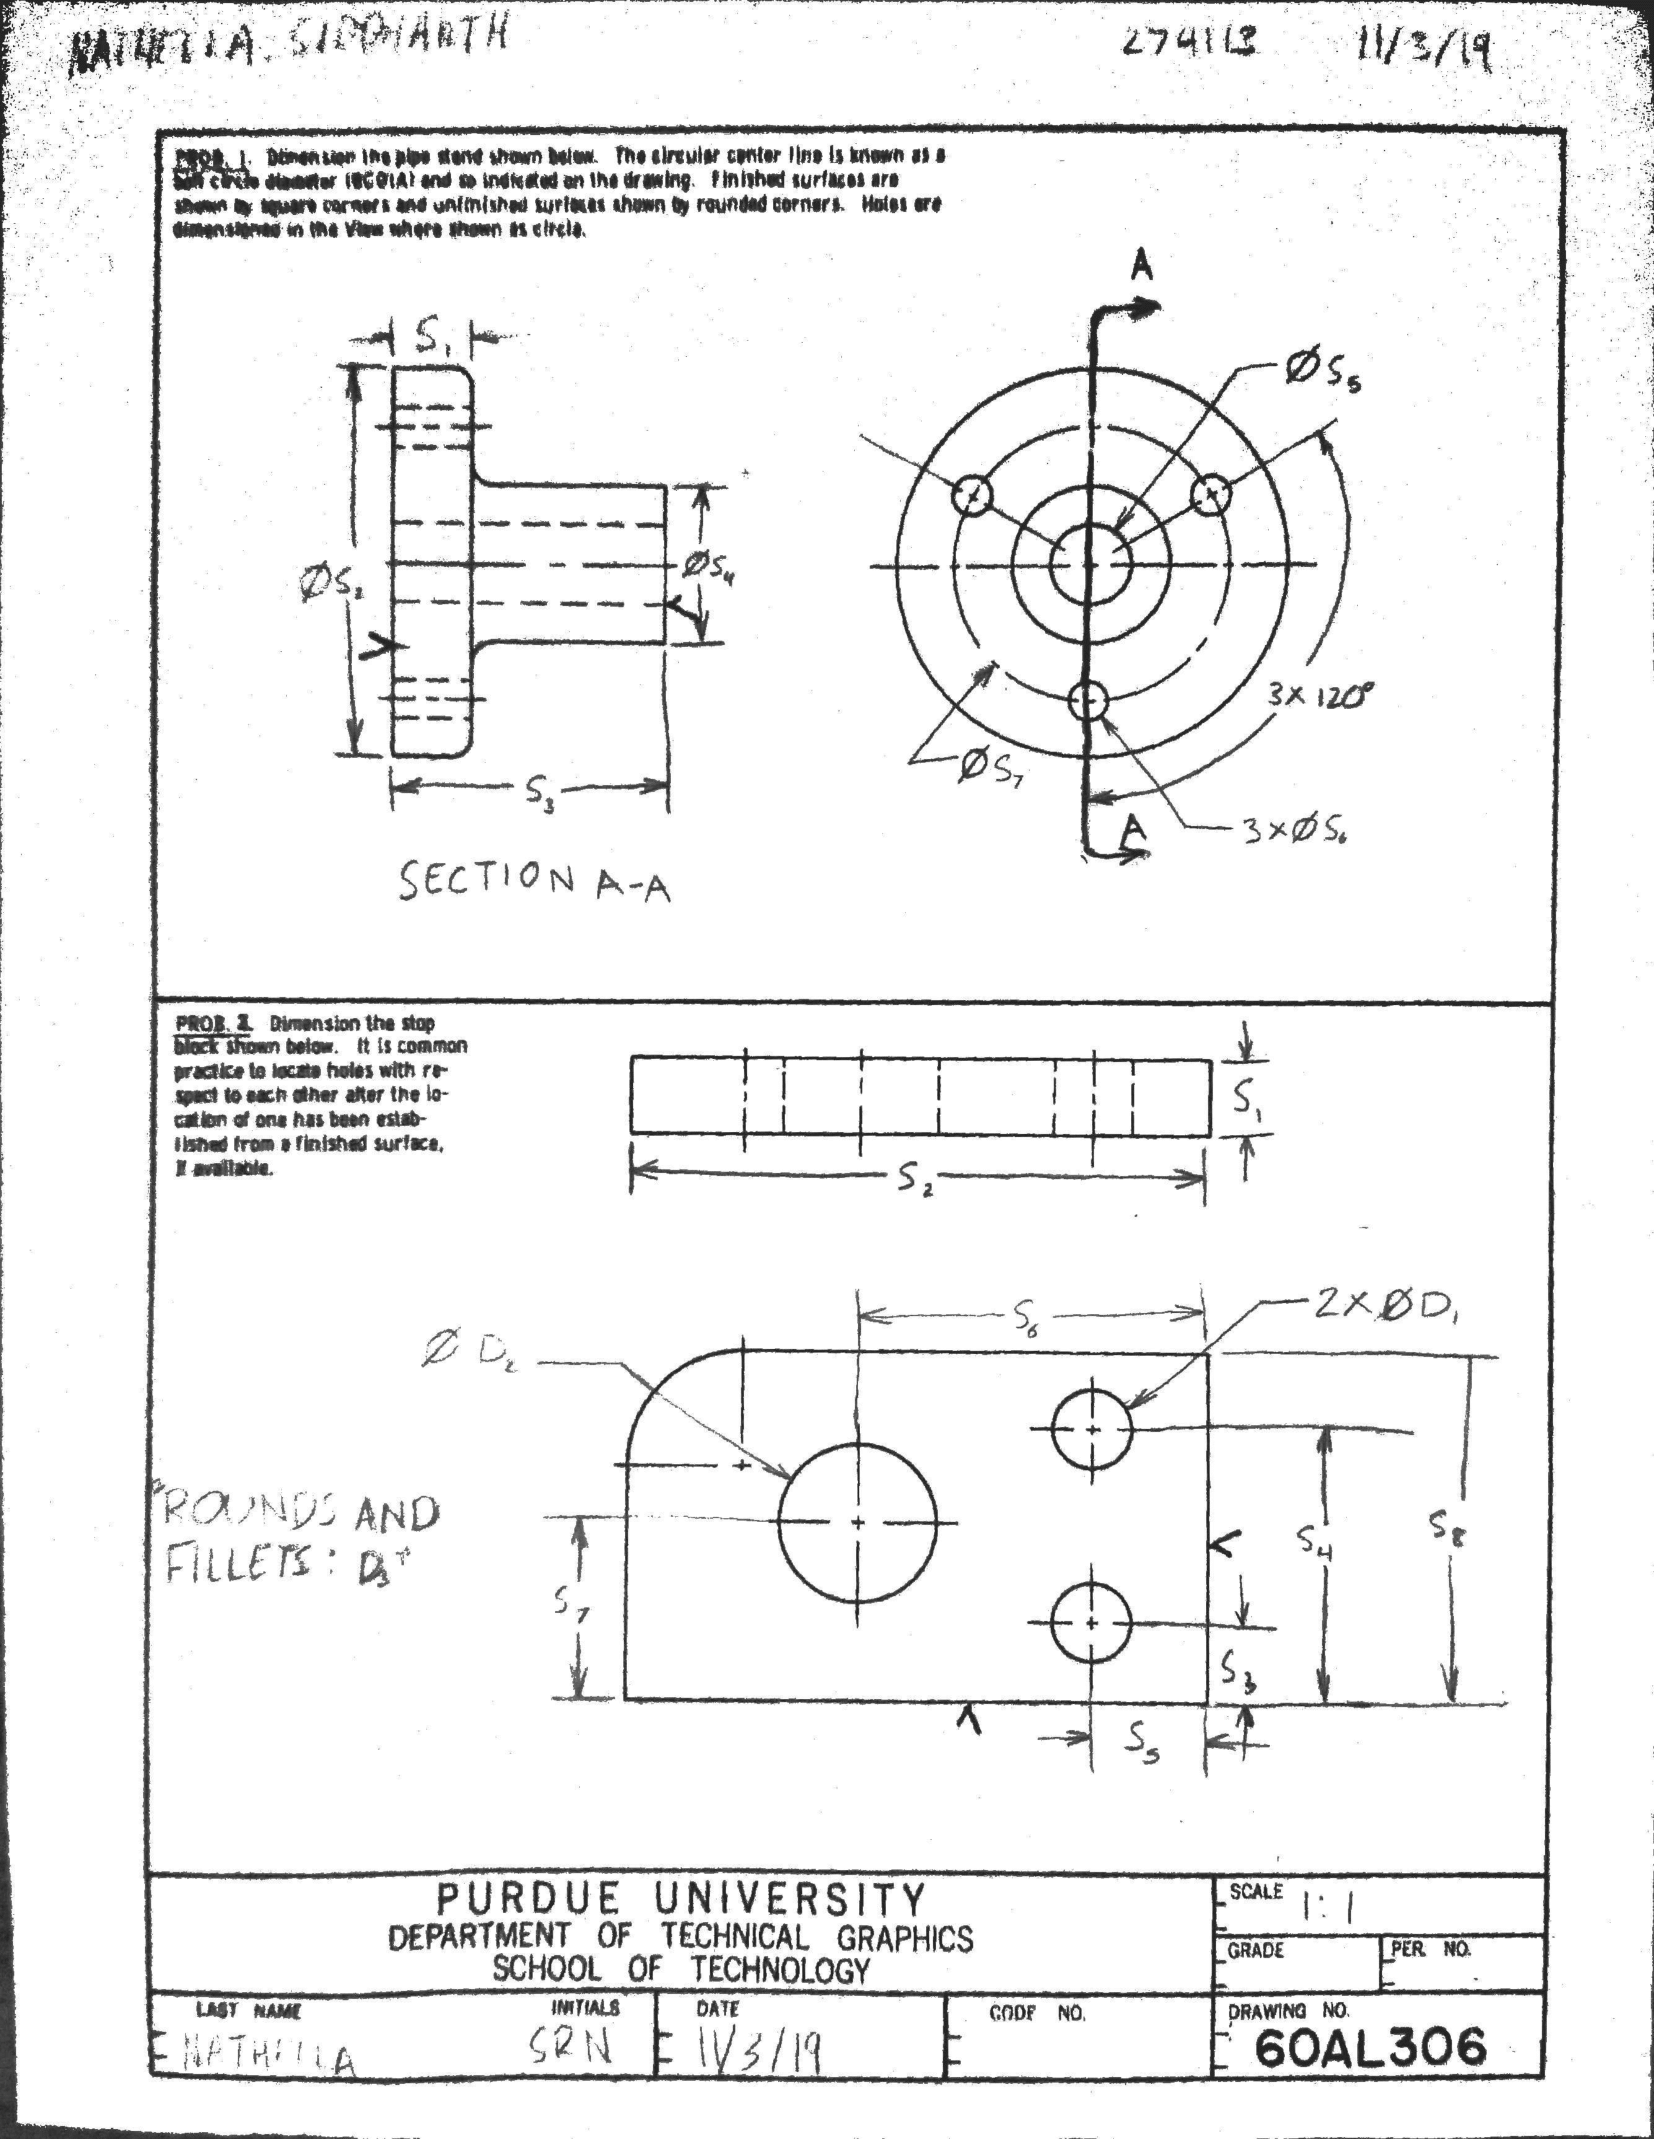 NATHELLA. SIDDHARTH 274113 11/3/19
PROB. 1. Dimension the pipe stand shown below. The circular center line is known as a
bolt circle diameter (BCDIA) and so indicated on the drawing. Finished surfaces are
shown by square corners and unfinished surfaces shown by rounded corners. Holes are
dimensioned in the View where shown as circle.
A
S₁
ØS₅
ØS₂
ØS₄
3×120°
ØS₇
S₃
A
3×ØS₆
SECTION A-A
PROB. 2. Dimension the stop
block shown below. It is common
practice to locate holes with re-
spect to each other after the lo-
cation of one has been estab-
lished from a finished surface,
if available.
S₁
S₂
S₆
2×ØD₁
ØD₂
ROUNDS AND
FILLETS: D₃
S₄
S₈
S₇
S₃
S₅
PURDUE UNIVERSITY
DEPARTMENT OF TECHNICAL GRAPHICS
SCHOOL OF TECHNOLOGY
SCALE 1:1
GRADE PER. NO.
LAST NAME INITIALS DATE CODE NO. DRAWING NO.
NATHELLA SRN 11/3/19 60AL306